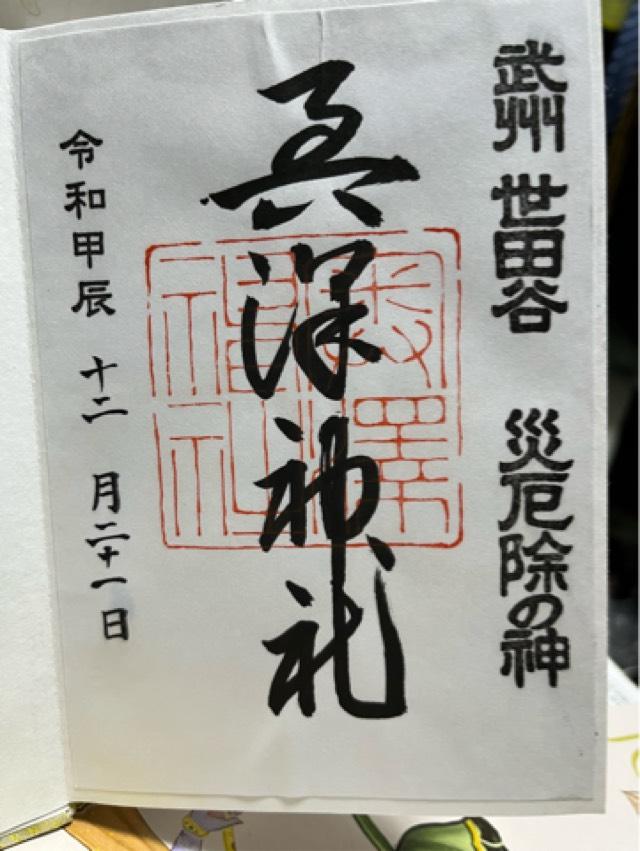 武州 世田谷 災厄除の神
奥澤神社
令和甲辰 十二 月二十一日